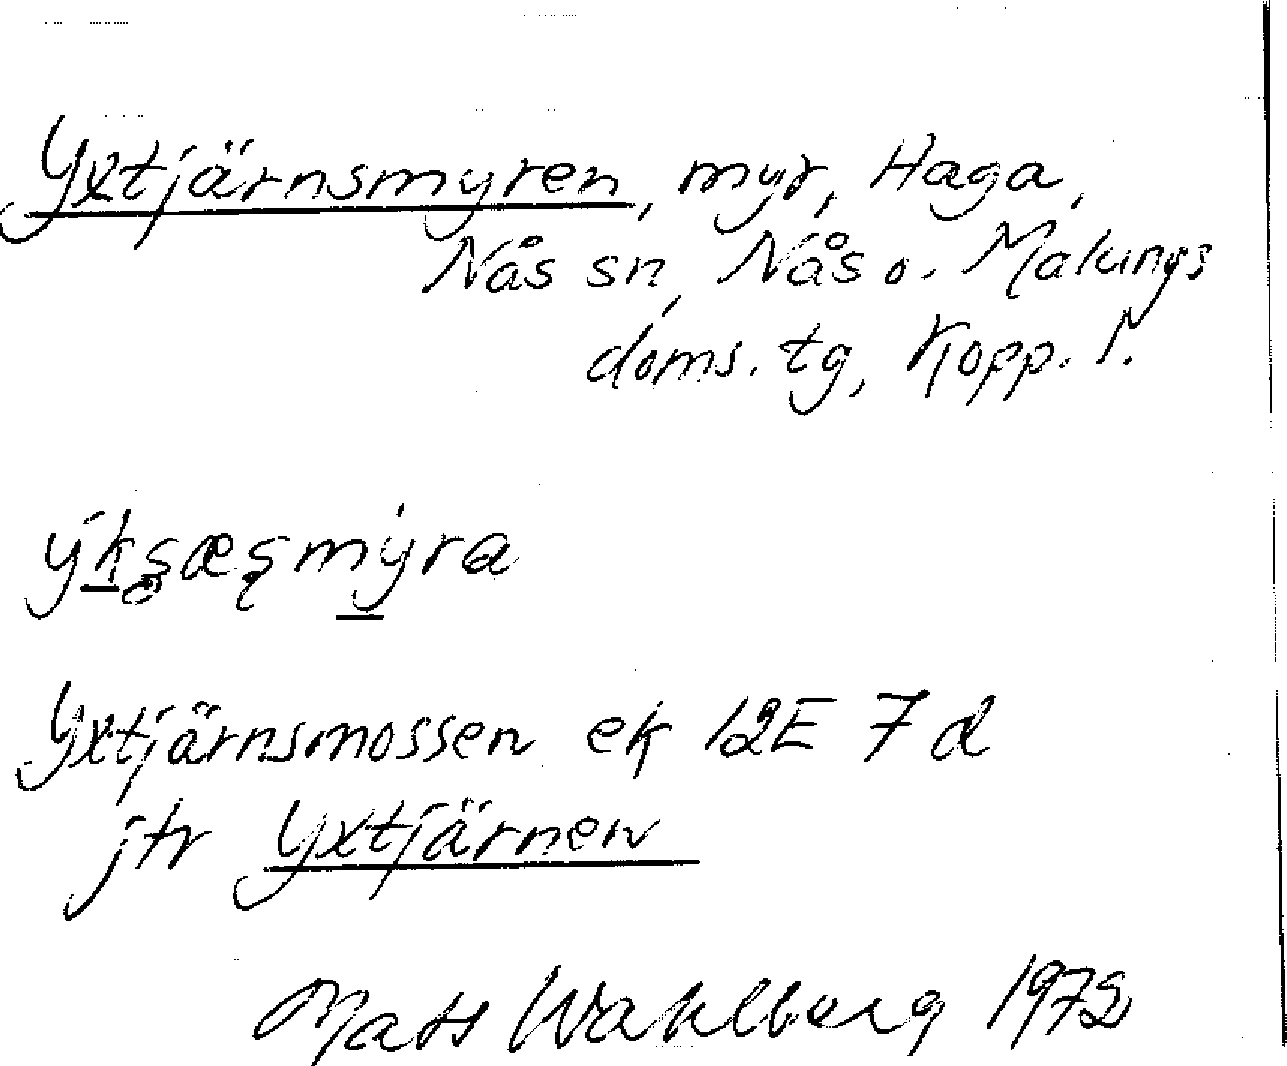 Yxtjärnsmyren, myr, Haga,
Nås sn, Nås o. Malungs
doms. tg, Kopp. l.
Yxtjärnsmossen ek 12E 7d
jfr Yxtjärnen
Mats Wahlberg 1972